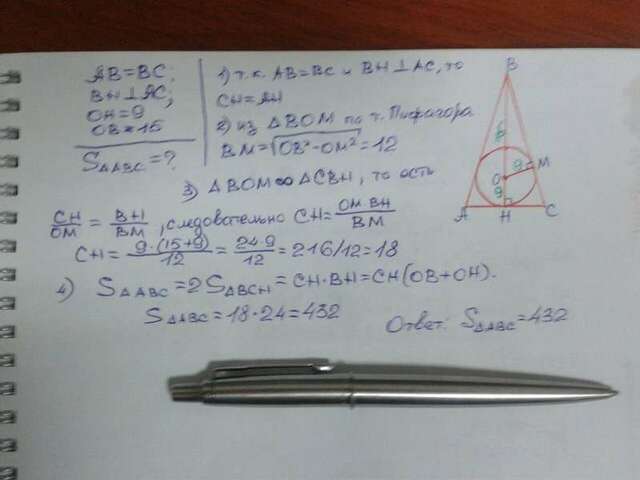 AB=BC;
BH⊥AC;
OH=9
OB=15
S△ABC=?
1) т.к. AB=BC и BH⊥AC, то
CH=AH
2) из △BOM по т. Пифагора
BM=√OB²-OM²=12
3) △BOM∞△CBH, то есть
CH/OM=BH/BM, следовательно CH=OM·BH/BM
CH=9·(15+9)/12=24·9/12=216/12=18
4) S△ABC=2S△BCH=CH·BH=CH(OB+OH).
S△ABC=18·24=432
Ответ: S△ABC=432
B
9
M
O
9
A
H
C